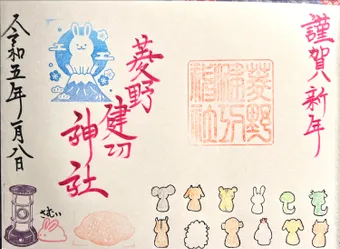 謹賀新年
菱野
健功
神社
菱野
健功
神社
令和五年一月八日
さむい